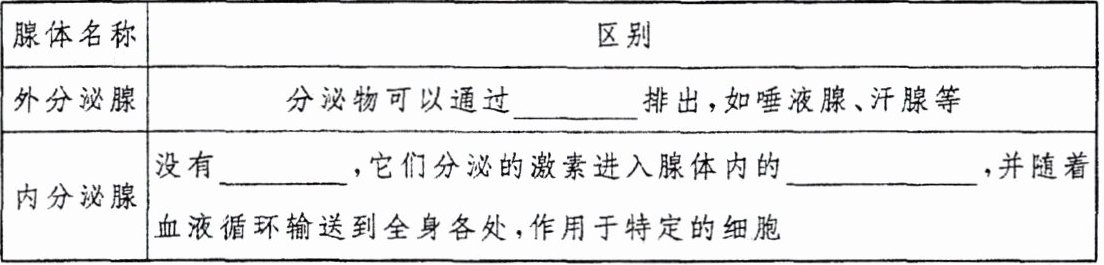 腺体名称 区别
外分泌腺 分泌物可以通过________排出,如唾液腺、汗腺等
内分泌腺 没有________,它们分泌的激素进入腺体内的____________,并随着
血液循环输送到全身各处,作用于特定的细胞